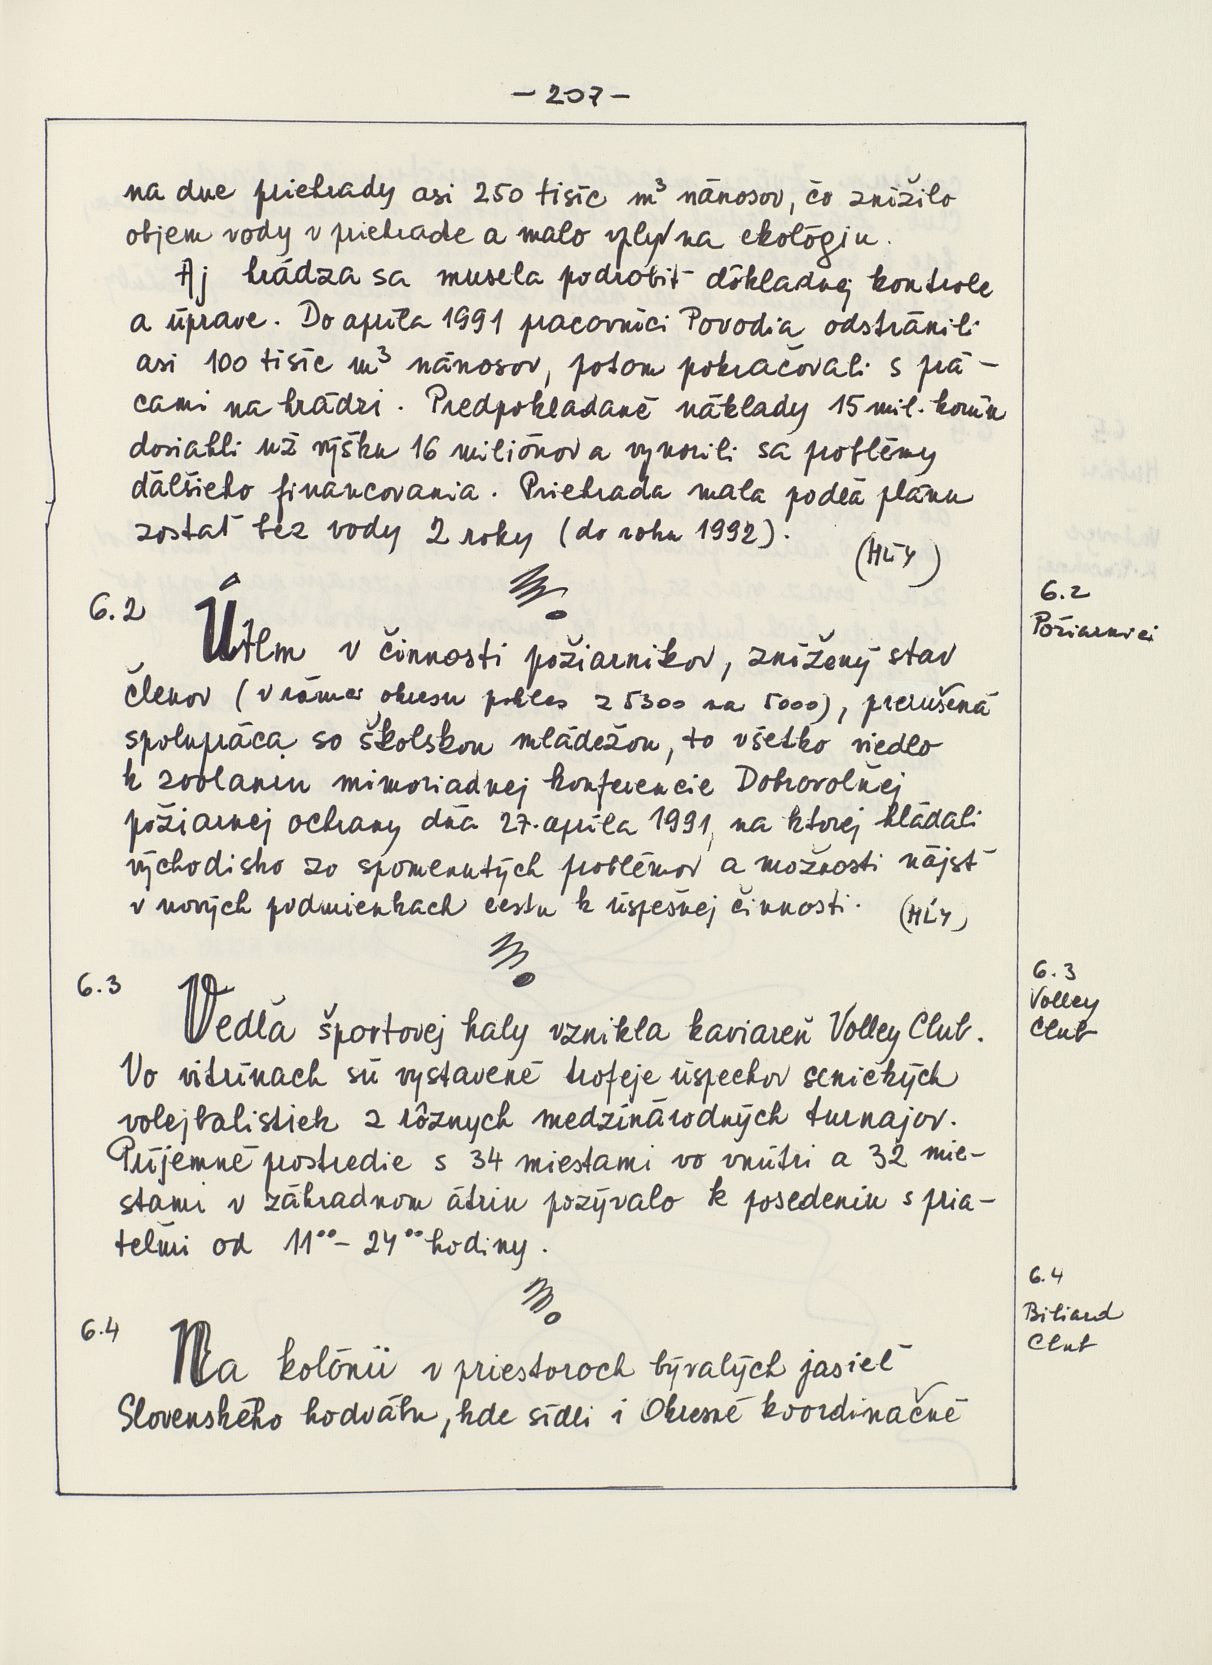 - 207 -
na dne priehrady asi 250 tisíc m³ nánosov, čo znížilo
objem vody v priehrade a malo vplyv na ekológiu.
Aj hrádza sa musela podrobiť dôkladnej kontrole
a úprave. Do apríla 1991 pracovníci Povodia odstránili
asi 100 tisíc m³ nánosov, potom pokračovali s prá-
cami na hrádzi. Predpokladané náklady 15 mil. korún
dosiahli už výšku 16 miliónov a vynorili sa problémy
ďalšieho financovania. Priehrada mala podľa plánu
zostať bez vody 2 roky (do roku 1992).
(HĽY)
6.2
Požiarnici
6.2 Útlm v činnosti požiarnikov, znížený stav
členov (v rámci okresu pokles z 5300 na 5000), prerušená
spolupráca so školskou mládežou, to všetko viedlo
k zvolaniu mimoriadnej konferencie Dobrovoľnej
požiarnej ochrany dňa 27. apríla 1991, na ktorej hľadali
východisko zo spomenutých problémov a možnosti nájsť
v nových podmienkach cestu k úspešnej činnosti. (HĽY)
6.3
Volley
Club
6.3 Vedľa športovej haly vznikla kaviareň Volley Club.
Vo vitrínach sú vystavené trofeje úspechov senických
volejbalistiek z rôznych medzinárodných turnajov.
Príjemné prostredie s 34 miestami vo vnútri a 32 mie-
stami v záhradnom átriu pozývalo k posedeniu s pria-
teľmi od 11⁰⁰ - 24⁰⁰ hodiny.
6.4
Biliard
Club
6.4 Na kolónii v priestoroch bývalých jaslí
Slovenského hodvábu, kde sídli i Okresné koordinačné